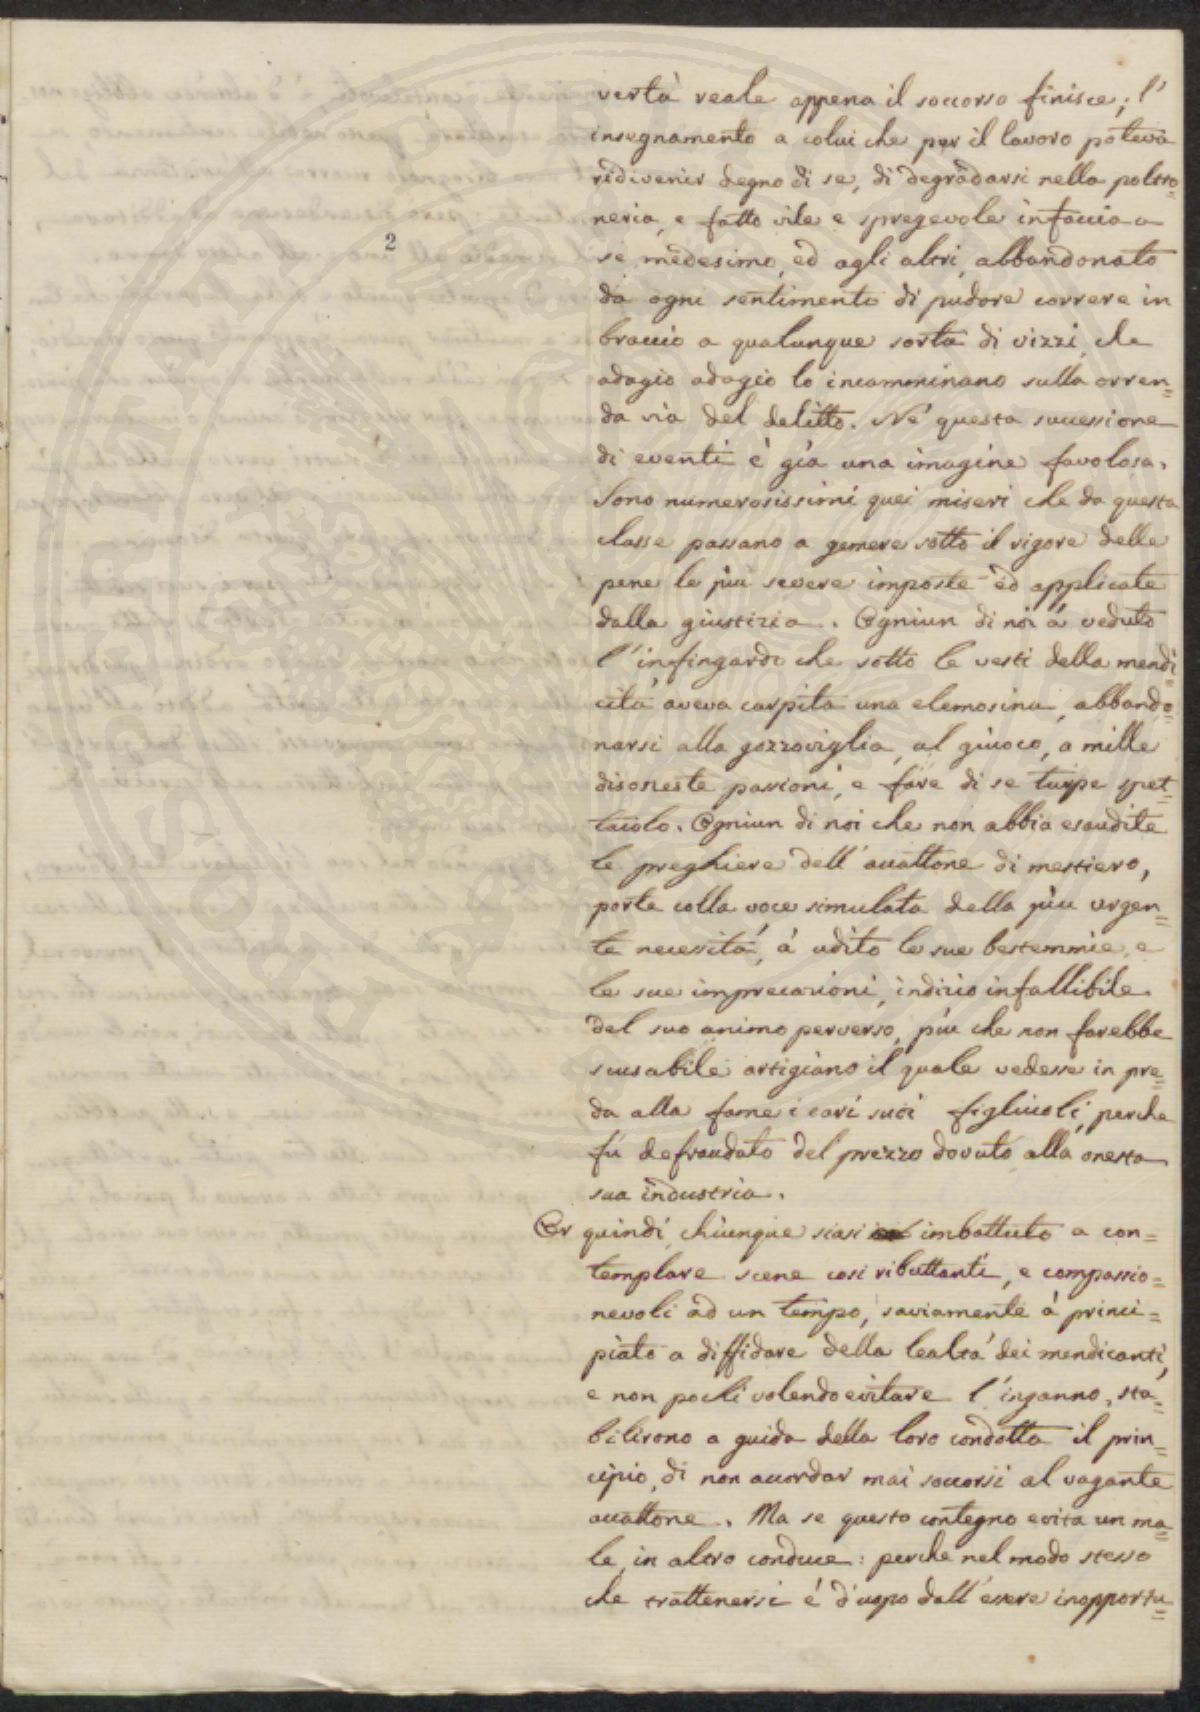 vertà reale appena il soccorso finisce; l'
insegnamento a colui che per il lavoro poteva
ridivenir degno di se, di degradarsi nella poltro=
neria, e fatto vile e spregevole in faccia a
2
se medesimo, ed agli altri, abbandonato
da ogni sentimento di pudore correre in
braccio a qualunque sorta di vizzi, che
adagio adagio lo incamminano sulla orren=
da via del delitto. Nè questa successione
di eventi è già una imagine favolosa.
Sono numerosissimi quei miseri che da questa
classe passano a gemere sotto il rigore delle
pene le più severe imposte ed applicate
dalla giustizia. Ogniun di noi à veduto
l'infingardo che sotto le vesti della mendi=
cità aveva carpita una elemosina, abbando=
narsi alla gozzoviglia, al giuoco, a mille
disoneste passioni, e fare di se turpe spet=
tacolo. Ogniun di noi che non abbia esaudite
le preghiere dell'accattone di mestiero,
porte colla voce simulata della più urgen=
te necessità, à udito le sue bestemmie, e
le sue imprecazioni, indizio infallibile
del suo animo perverso, più che non farebbe
scusabile artigiano il quale vedesse in pre=
da alla fame i cari suoi figliuoli, perche
fù defraudato del prezzo dovuto alla onesta
sua industria.
Or quindi, chiunque siasi imbattuto a con=
templare scene così ributtanti, e compassio=
nevoli ad un tempo, saviamente à princi=
piato a diffidare della lealtà dei mendicanti,
e non pochi volendo evitare l'inganno, sta=
bilirono a guida della loro condotta il prin=
cipio, di non accordar mai soccorsi al vagante
accattone. Ma se questo contegno evita un ma=
le, in altro conduce: perche nel modo stesso
che trattenersi è d'uopo dall'essere inopportu=